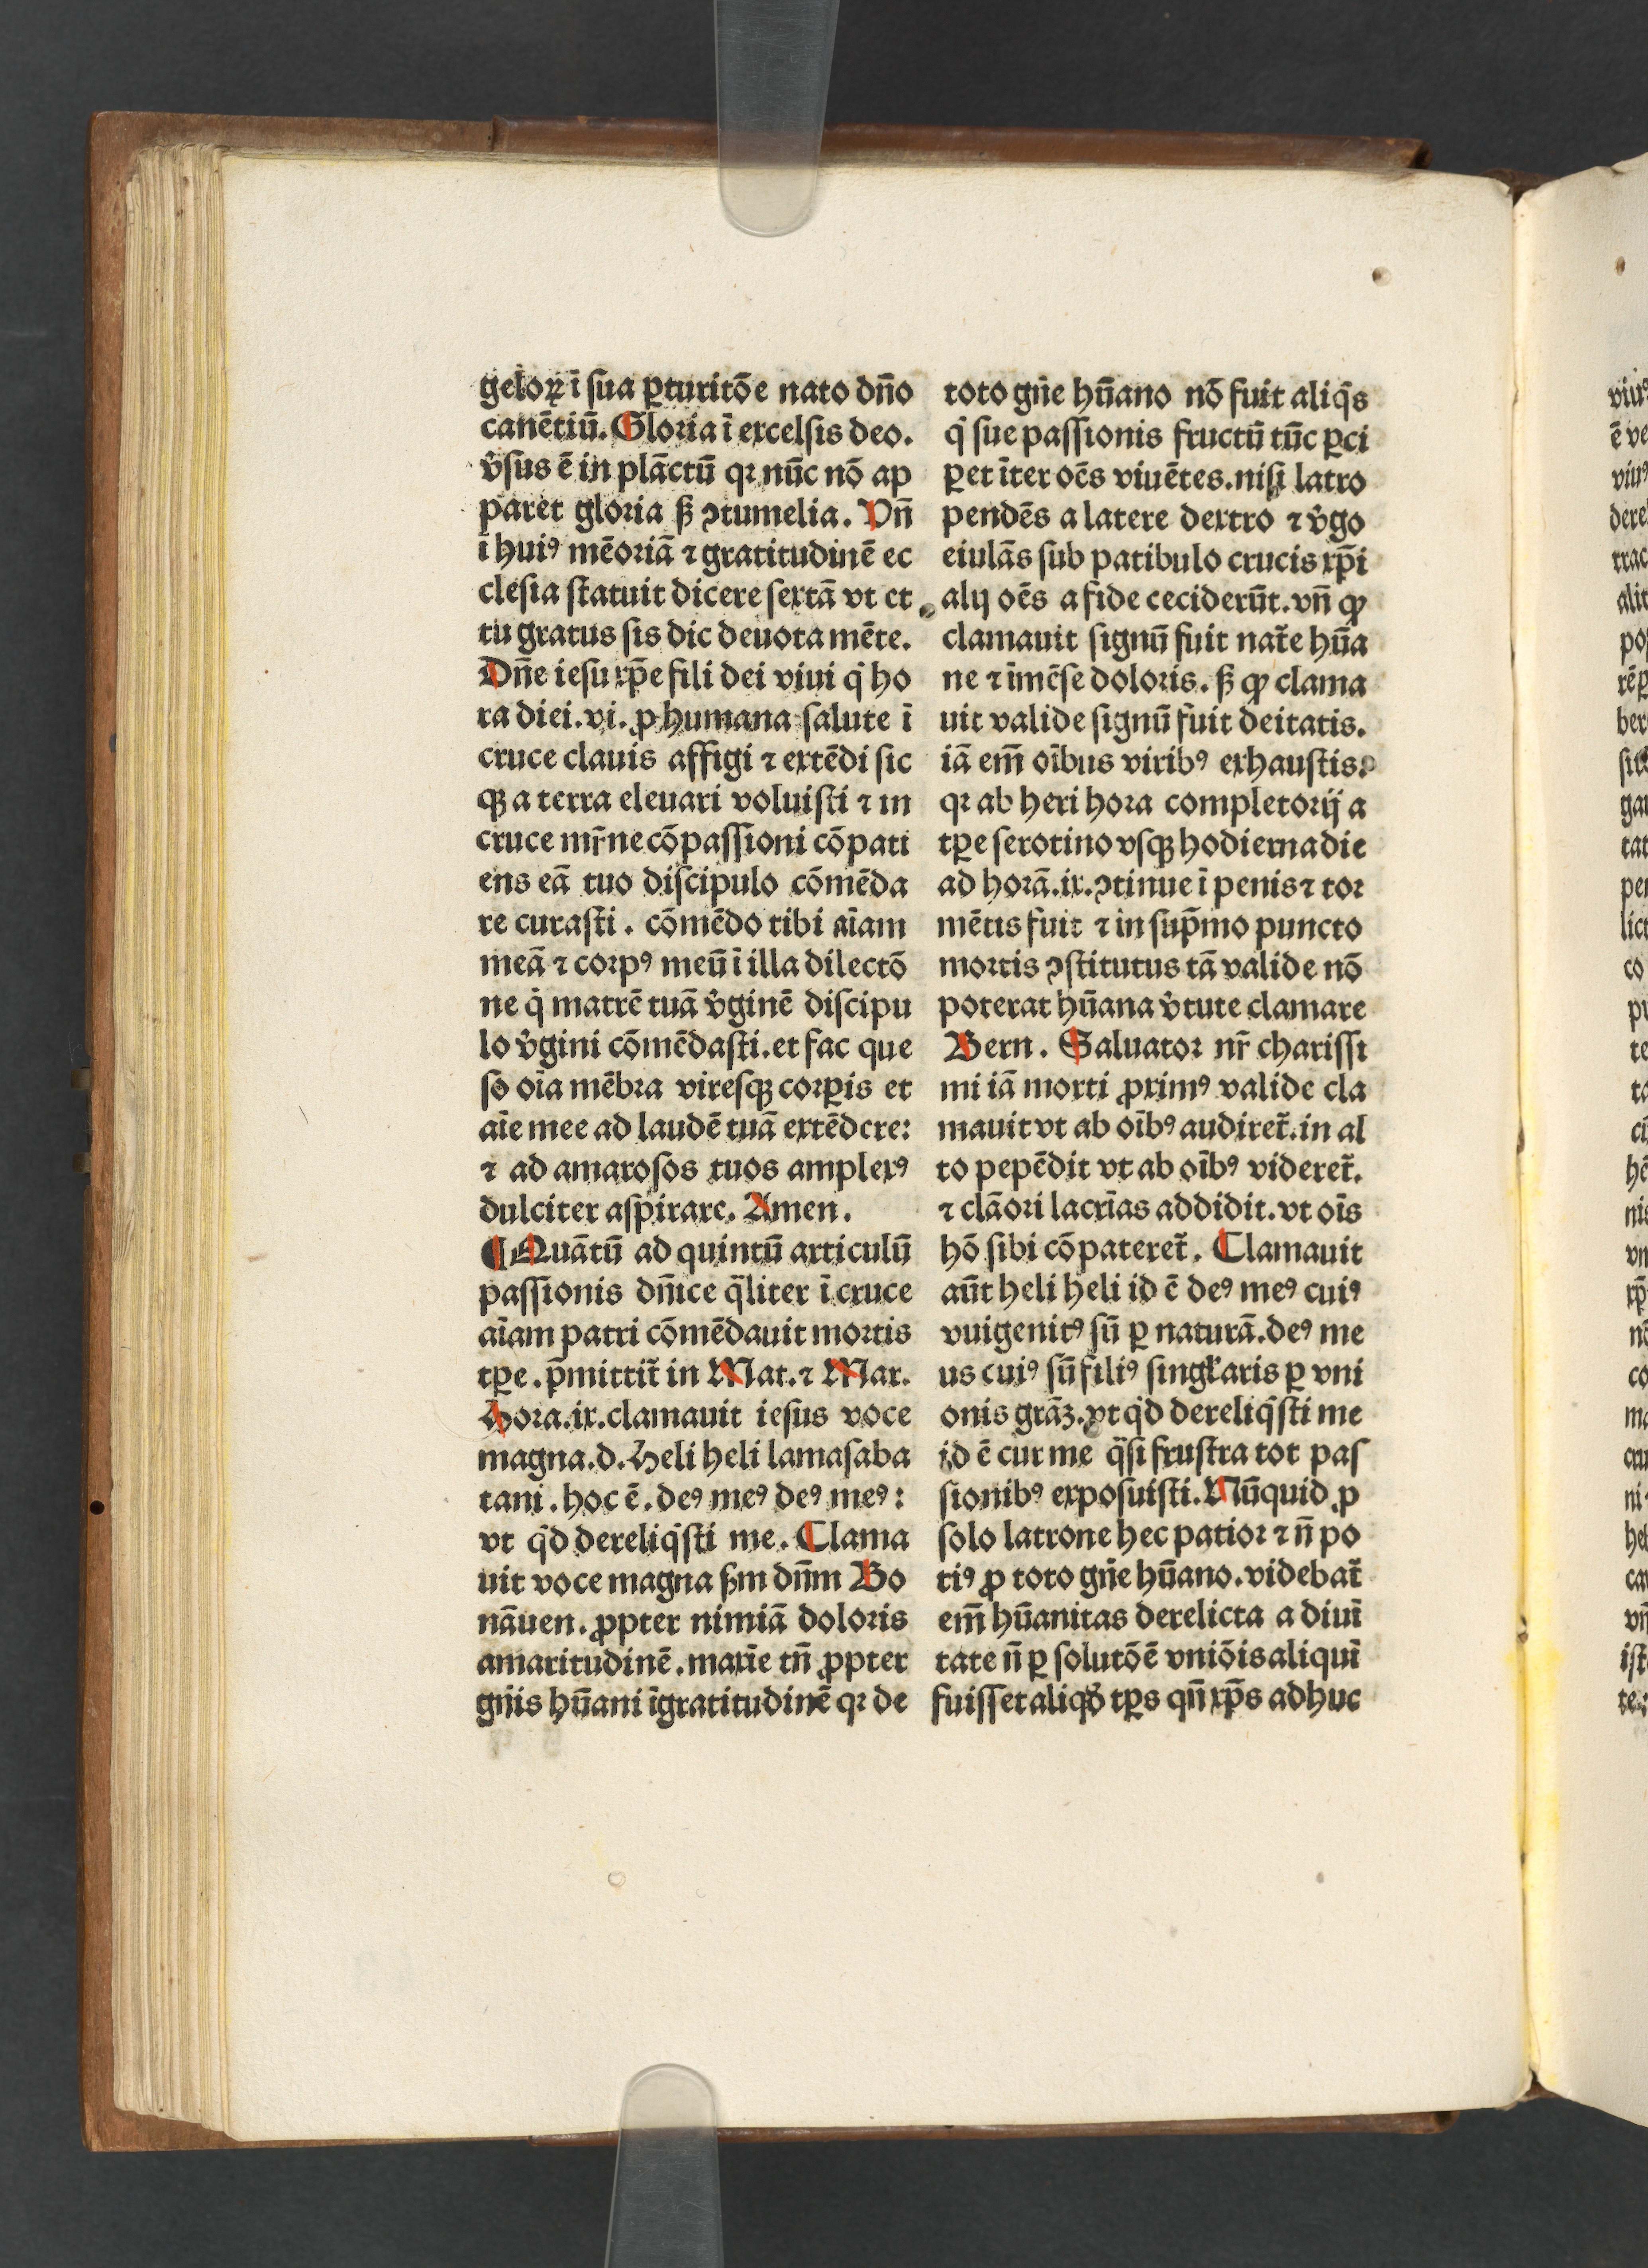 geloꝝ ī sua ꝑturitōe nato dn̄o
canētiū. Gloria ī excelsis deo.
v̓sus ē in plāctū qꝛ nūc nō ap
paret gloria ß ꝯtumelia. Vn̄
ī huiꝰ mēoriā ⁊ gratitudinē ec
clesia statuit dicere sextā vt et
tu gratus sis dic deuota mēte.
Dn̄e iesu xp̄e fili dei viui q̇ ho
ra diei.vi. ꝓ humana salute ī
cruce clauis affigi ⁊ extēdi sic
qꝫ a terra eleuari voluisti ⁊ in
cruce mr̄ne cōpassioni cōpati
ens eā tuo discipulo cōmēda
re curasti. cōmēdo tibi aīam
meā ⁊ corpꝰ meū ī illa dilectō
ne q̇ matrē tuā v̓ginē discipu
lo v̓gini cōmēdasti. et fac que
so oīa mēbra viresqꝫ corꝑis et
aīe mee ad laudē tuā extēdere:
⁊ ad amarosos tuos amplexꝰ
dulciter aspirare. Amen.
¶ Quātū ad quintū articulū
passionis dn̄ice q̄liter ī cruce
aīam patri cōmēdauit mortis
tꝑe. p̄mittit̄ in Mat. ⁊ Mar.
Hora.ix.clamauit iesus voce
magna.d. Heli heli lamasaba
tani. hoc ē. deꝰ meꝰ deꝰ meꝰ:
vt q̇d dereliq̇sti me. Clama
uit voce magna ßm dn̄m Bo
nāuen. ꝓpter nimiā doloris
amaritudinē. maxīe tn̄ ꝓpter
gn̄is hūani īgratitudinē qꝛ de
toto gn̄e hūano nō fuit aliq̇s
q̇ sue passionis fructū tūc ꝑci
ꝑet īter oēs viuētes. nisi latro
pendēs a latere dextro ⁊ v̓go
eiulās sub patibulo crucis xp̄i
alij oēs a fide ceciderūt. vn̄ ꝙ
clamauit signū fuit nat̄e hūa
ne ⁊ īmēse doloris. ß ꝙ clama
uit valide signū fuit deitatis.
iā em̄ oībus viribꝰ exhaustis.
qꝛ ab heri hora completorij a
tꝑe serotino vsqꝫ hodierna die
ad horā.ix. ꝯtinue ī penis ⁊ tor
mētis fuit ⁊ in sup̄mo puncto
mortis ꝯstitutus tā valide nō
poterat hūana v̓tute clamare
Bern. Saluator nr̄ charissi
mi iā morti ꝓximꝰ valide cla
mauit vt ab oībꝰ audiret̄. in al
to pepēdit vt ab oībꝰ videret̄.
⁊ clāori lacrīas addidit. vt oīs
hō sibi cōpateret̄. Clamauit
aūt heli heli id ē deꝰ meꝰ cuiꝰ
vuigenitꝰ sū ꝑ naturā. deꝰ me
us cuiꝰ sū filiꝰ singƚaris ꝑ vni
onis grāꝫ. vt q̇d dereliq̇sti me
id ē cur me q̄si frustra tot pas
sionibꝰ exposuisti. Nūquid ꝓ
solo latrone hec patior ⁊ n̄ po
tiꝰ ꝓ toto gn̄e hūano. videbat̄
em̄ hūanitas derelicta a diuī
tate n̄ ꝑ solutōē vniōis aliquī
fuisset aliqd̓ tꝑs qn̄ xp̄s adhuc